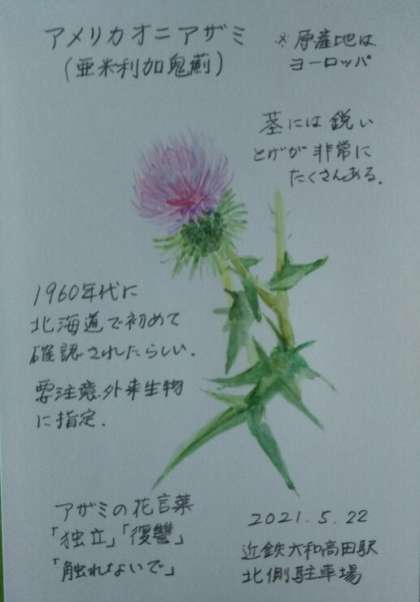 アメリカオニアザミ
(亜米利加鬼薊)
※原産地は
ヨーロッパ
茎には鋭い
とげが非常に
たくさんある.
1960年代に
北海道で初めて
確認されたらしい.
要注意外来生物
に指定.
アザミの花言葉
「独立」「復讐」
「触れないで」
2021.5.22
近鉄大和高田駅
北側駐車場